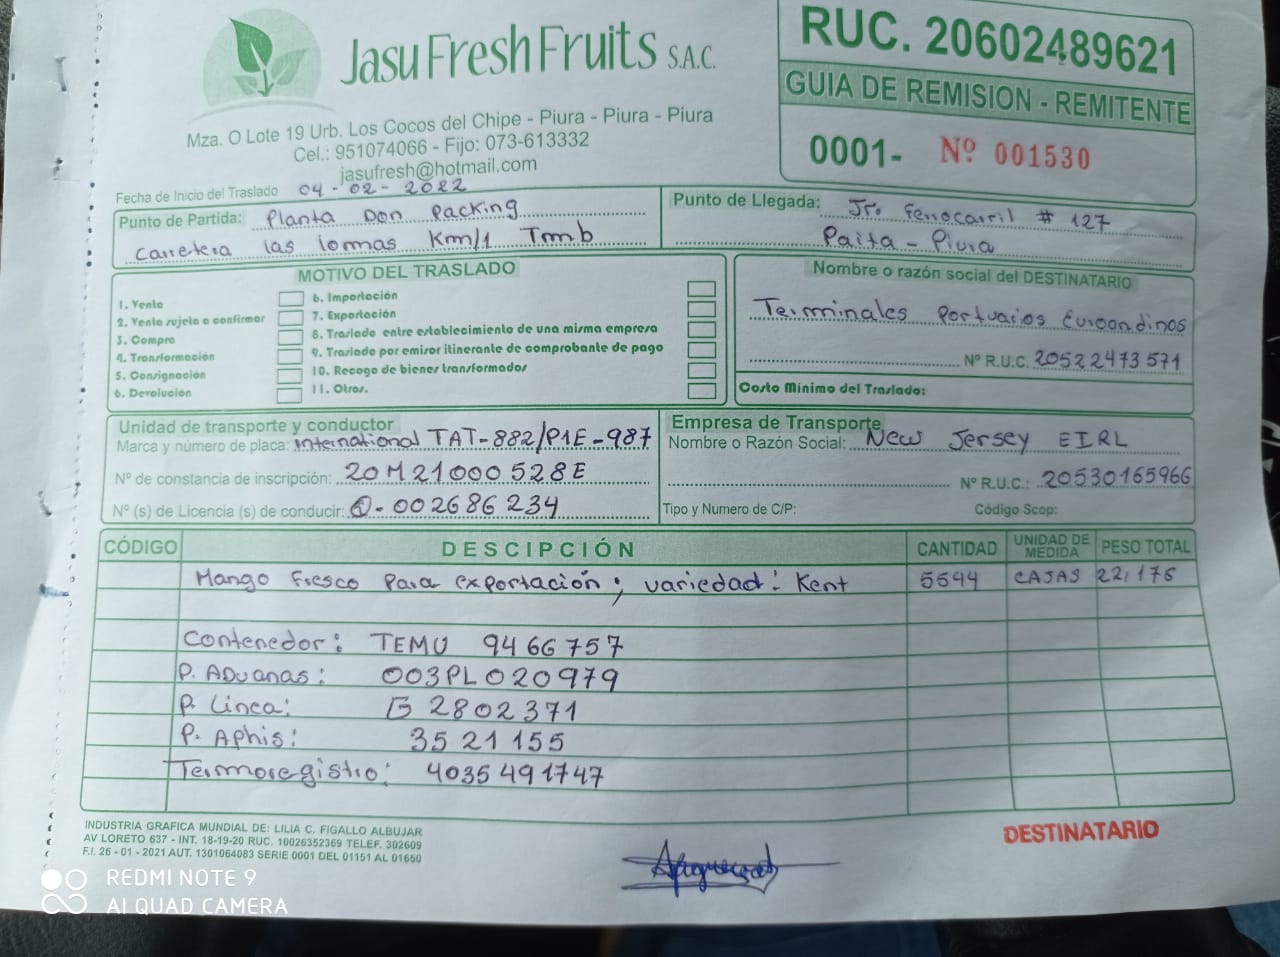 Jasu Fresh Fruits S.A.C.
Mza. O Lote 19 Urb. Los Cocos del Chipe - Piura - Piura - Piura
Cel.: 951074066 - Fijo: 073-613332
jasufresh@hotmail.com
RUC. 20602489621
GUIA DE REMISION - REMITENTE
0001- Nº 001530
Fecha de Inicio del Traslado 04-02-2022
Punto de Partida: Planta Don Packing
Carretera las lomas Km/1 Tmb
Punto de Llegada: Jr. Ferrocarril # 127
Paita - Piura
MOTIVO DEL TRASLADO
1. Venta
2. Venta sujeta a confirmar
3. Compra
4. Transformación
5. Consignación
6. Devolución
6. Importación
7. Exportación
8. Traslado entre establecimiento de una misma empresa
9. Traslado por emisor itinerante de comprobante de pago
10. Recogo de bienes transformados
11. Otros.
Nombre o razón social del DESTINATARIO
Terminales Portuarios Euroandinos
Nº R.U.C. 20522473571
Costo Mínimo del Traslado:
Unidad de transporte y conductor
Marca y número de placa: International TAT-882/P1E-987
Nº de constancia de inscripción: 20M21000528E
Nº (s) de Licencia (s) de conducir: Q-002686234
Empresa de Transporte
Nombre o Razón Social: New Jersey EIRL
Nº R.U.C.: 20530165966
Tipo y Numero de C/P: Código Scop:
CÓDIGO DESCIPCIÓN CANTIDAD UNIDAD DE MEDIDA PESO TOTAL
Mango Fresco Para exportación; variedad: Kent 5544 CAJAS 22,176
Contenedor: TEMU 9466757
P. ADuanas: 003PL020979
P. Linea: B 2802371
P. Aphis: 3521155
Termoregistro: 4035491747
INDUSTRIA GRAFICA MUNDIAL DE: LILIA C. FIGALLO ALBUJAR
AV LORETO 637 - INT. 18-19-20 RUC. 10026352369 TELEF. 302609
F.I. 26 - 01 - 2021 AUT. 1301064083 SERIE 0001 DEL 01151 AL 01650
DESTINATARIO
REDMI NOTE 9
AI QUAD CAMERA